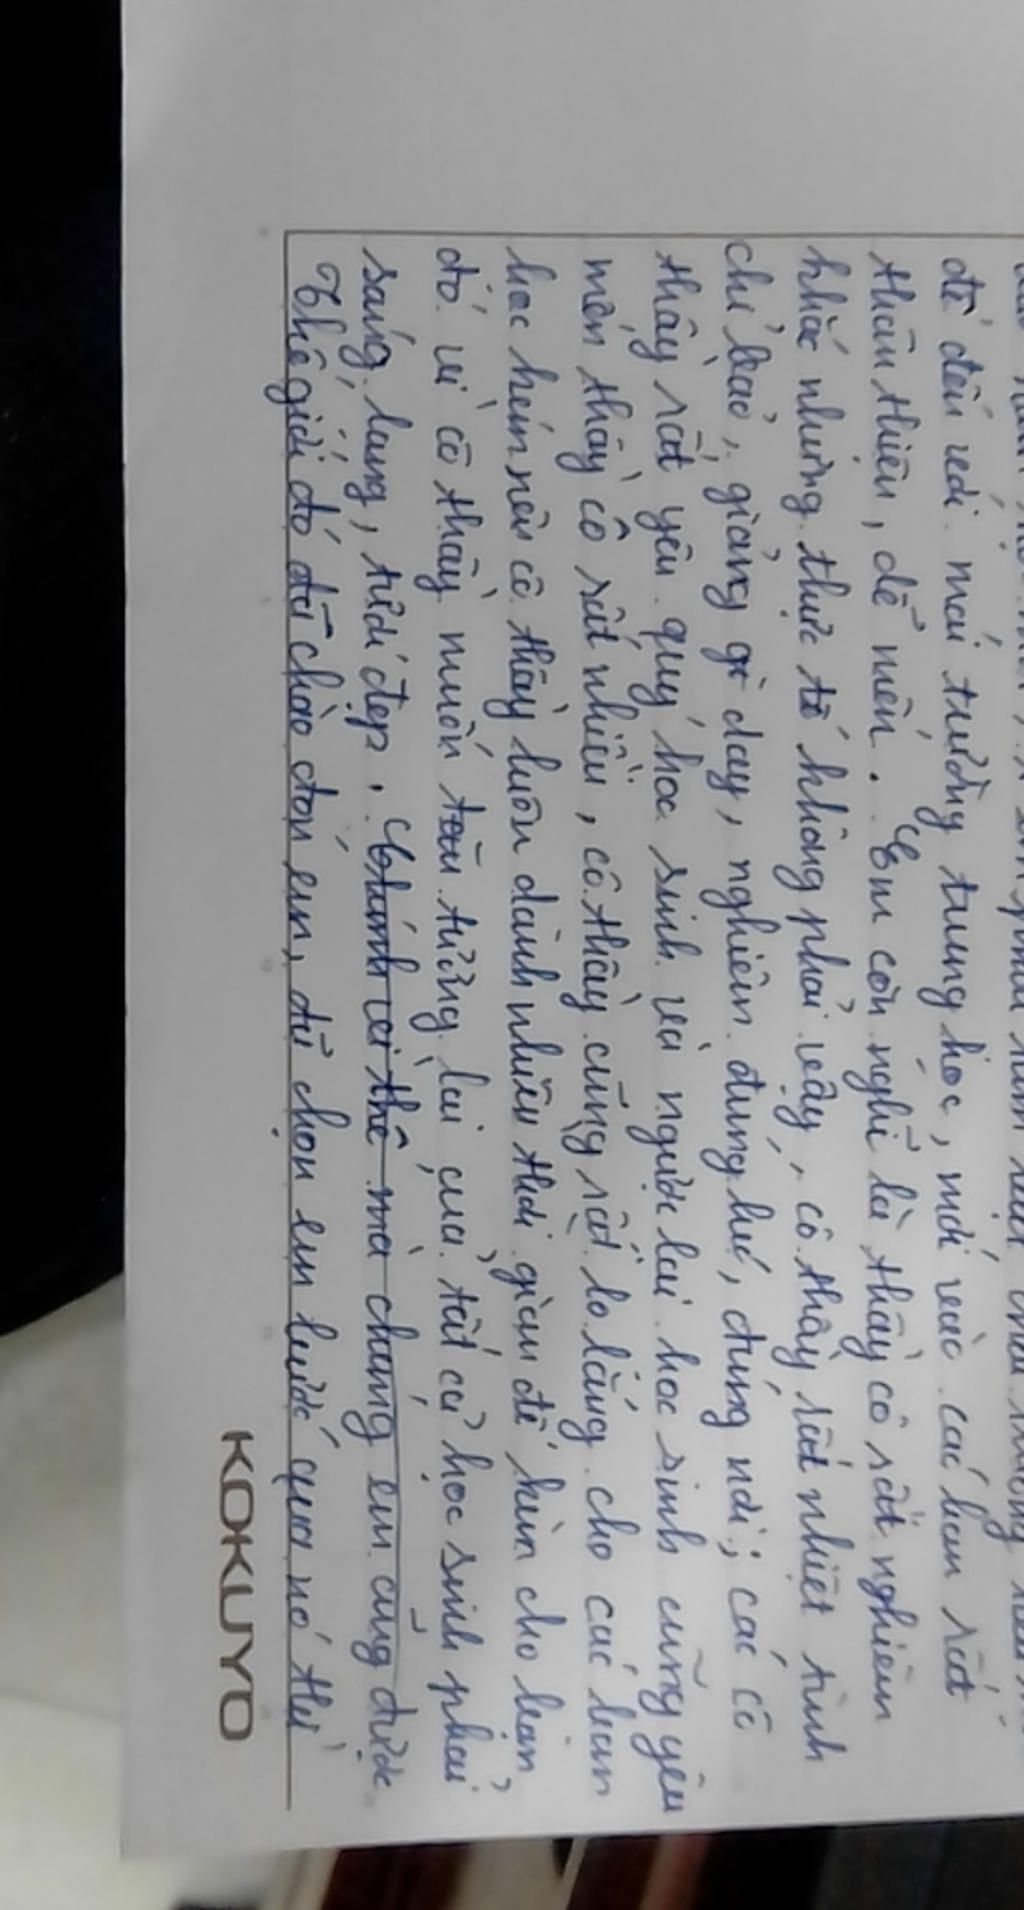 để đến với mái trường trung học, mới vào các bạn rất
thân thiện, dễ mến. Em còn nghĩ là thầy cô rất nghiêm
khắc nhưng thực tế không phải vậy, cô thầy rất nhiệt tình
chỉ bảo, giảng dạy, nghiêm đúng lúc, đúng nơi; các cô
thầy rất yêu quý học sinh và người lại học sinh cũng yêu
mến thầy cô rất nhiều, cô thầy cũng rất lo lắng cho các bạn
học kém nên cô thầy luôn dành nhiều thời gian để kèm cho bạn
đó vì cô thầy muốn tương lai của tất cả học sinh phải
sáng lạng, tươi đẹp. Chính vì thế mà chúng em cũng được
Thế giới đó đã chào đón em, đã chọn em bước qua nó thì
KOKUYO